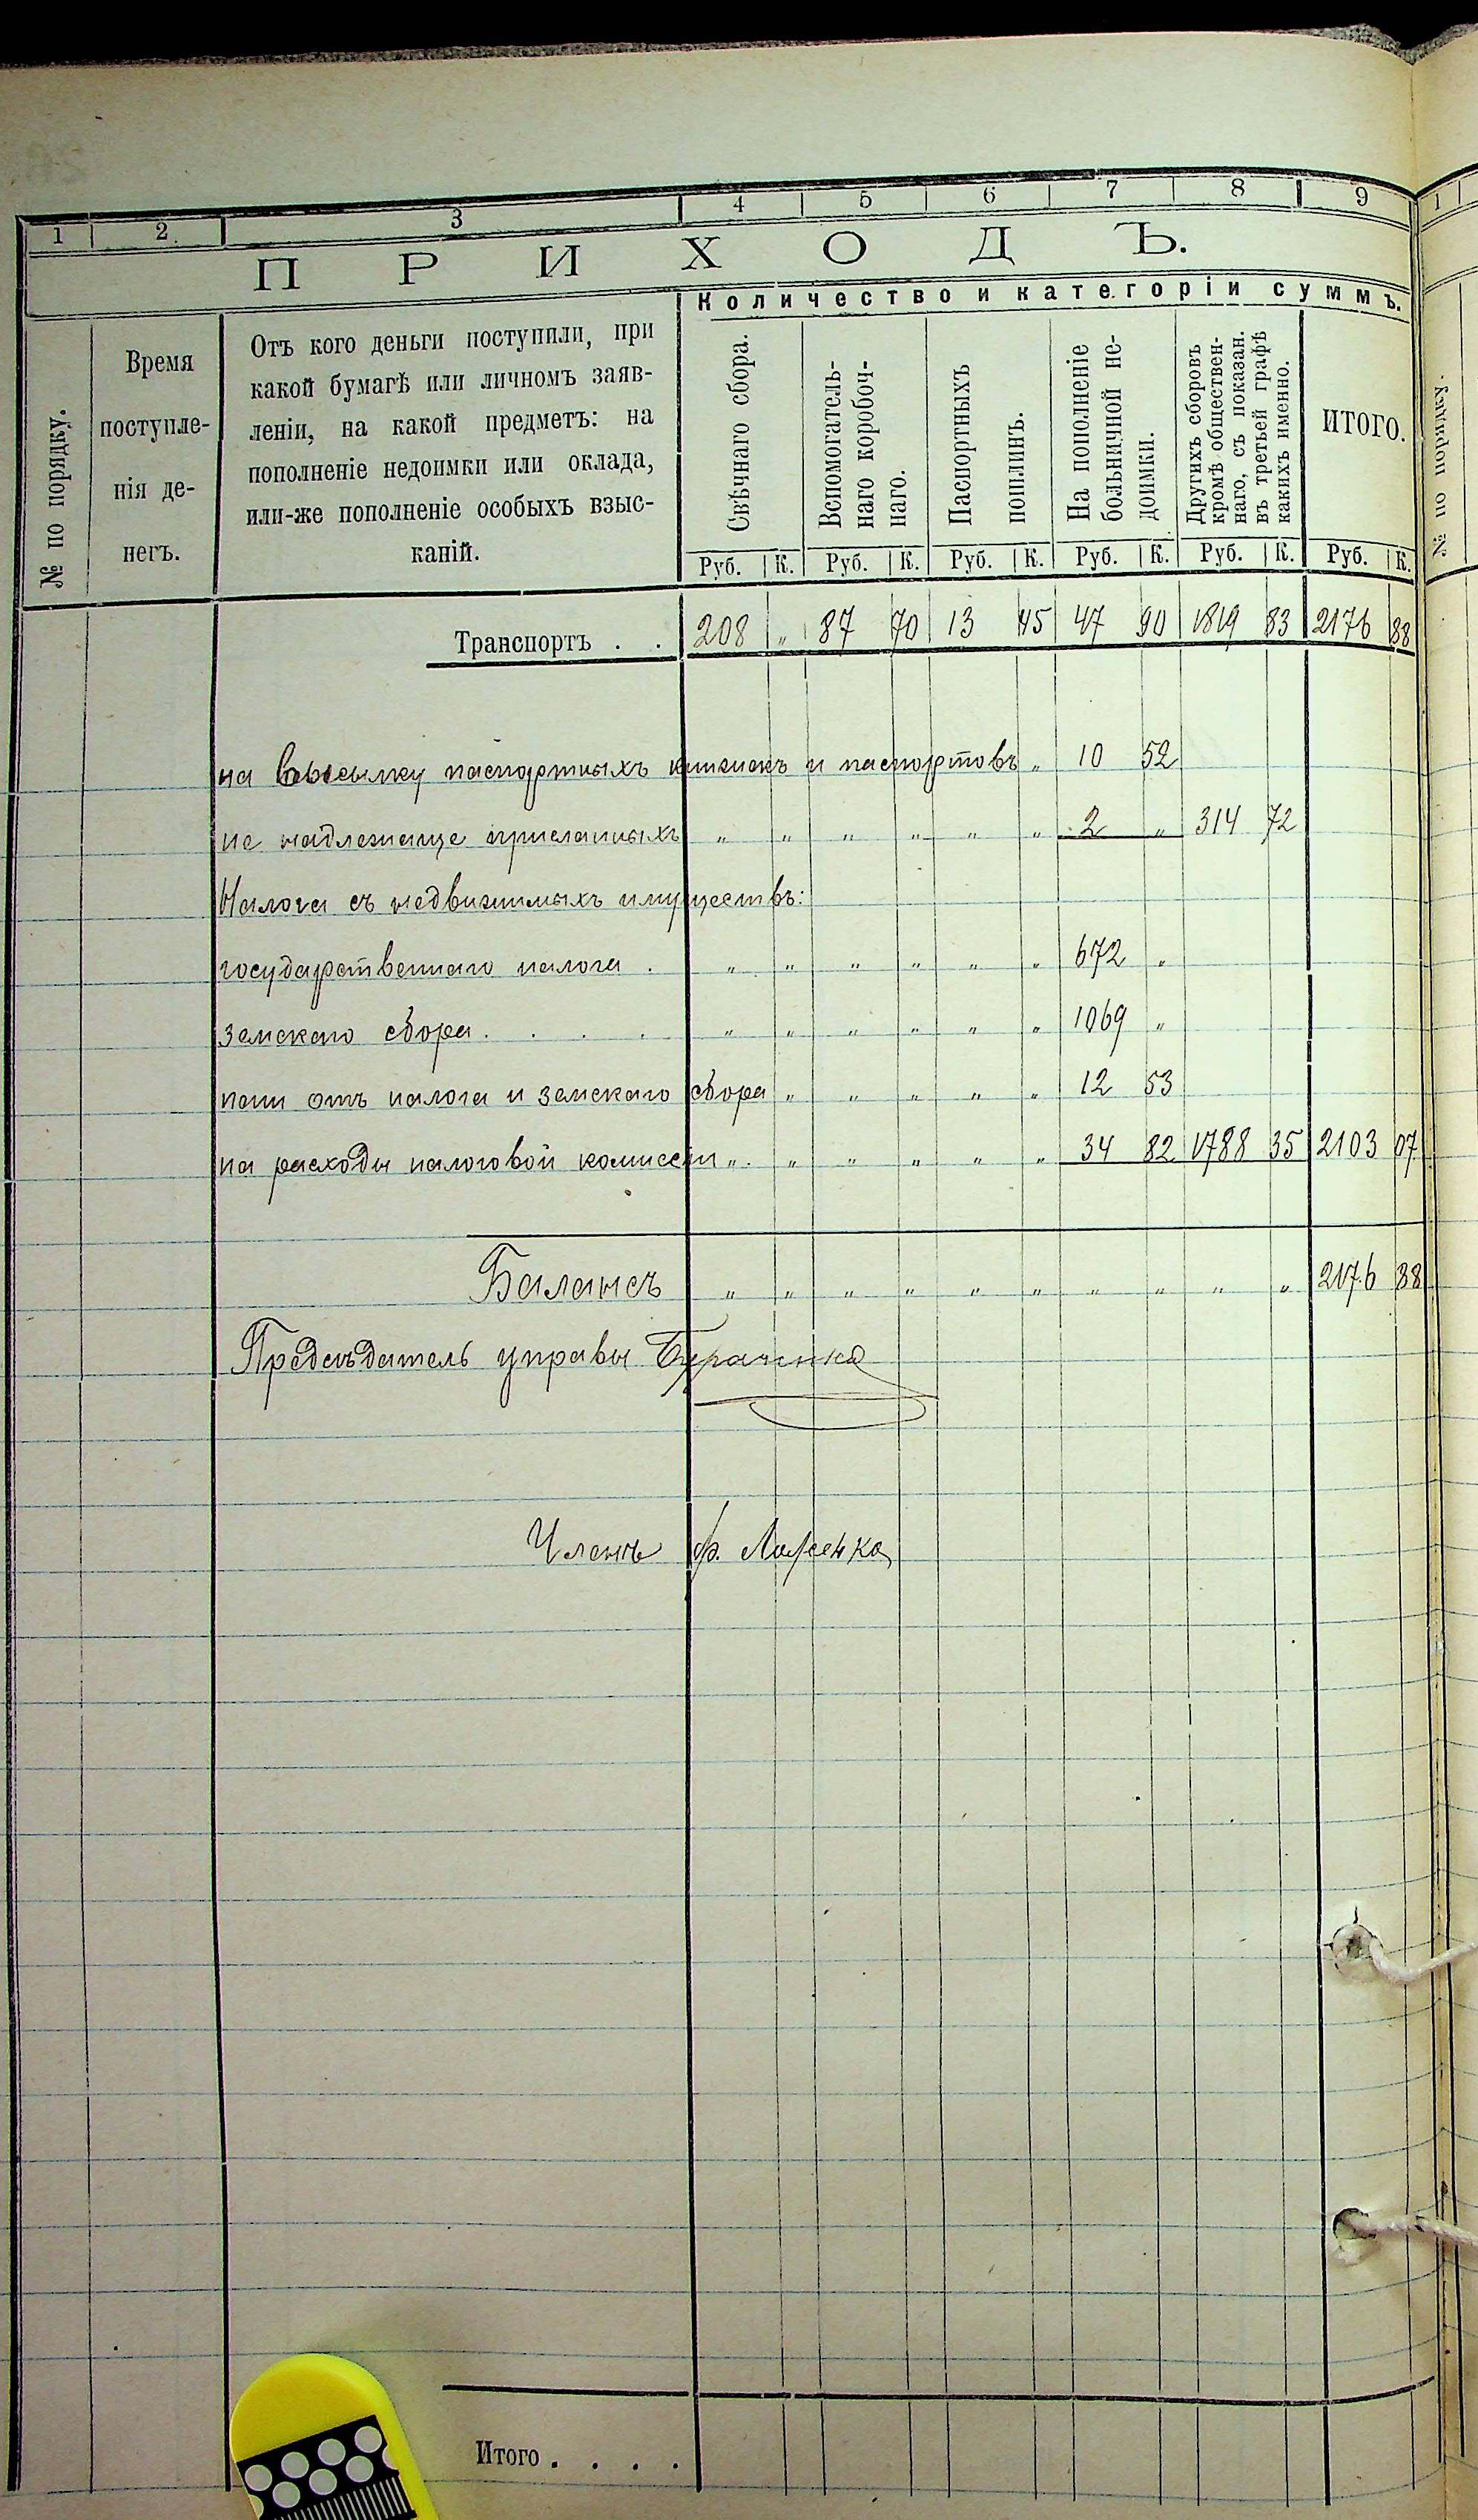 1 2 3 4 5 6 7 8 9 1
ПРИХОДЪ.
Количество и категоріи суммъ.
№ по порядку.
Время
поступле-
нія де-
негъ.
Отъ кого деньги поступили, при
какой бумагѣ или личномъ заяв-
леніи, на какой предметъ: на
пополненіе недоимки или оклада,
или-же пополненіе особыхъ взыс-
каній.
Свѣчнаго сбора.
Вспомогатель-
наго коробоч-
наго.
Паспортныхъ
пошлинъ.
На пополненіе
больничной не-
доимки.
Другихъ сборовъ
кромѣ обществен-
наго, съ показан.
въ третьей графѣ
какихъ именно.
ИТОГО.
№ по порядку.
Руб. К. Руб. К. Руб. К. Руб. К. Руб. К. Руб. К.
Транспортъ . . 208 " 87 70 13 45 47 90 1819 83 2176 88
на высылку паспортныхъ книжекъ и паспортовъ " 10 52
не надлежаще присланныхъ " " " " " " 2 " 314 72
Налога съ недвижимыхъ имуществъ:
государственнаго налога . " " " " " " 672 "
земскаго сбора . . . . " " " " " " 1069 "
пени отъ налога и земскаго сбора " " " " " 12 53
на расходы налоговой комиссіи " . " " " " " 34 82 1788 35 2103 07
Балансъ " " " " " " " " " " 2176 88
Предсѣдатель управы
Членъ
Итого . . . .